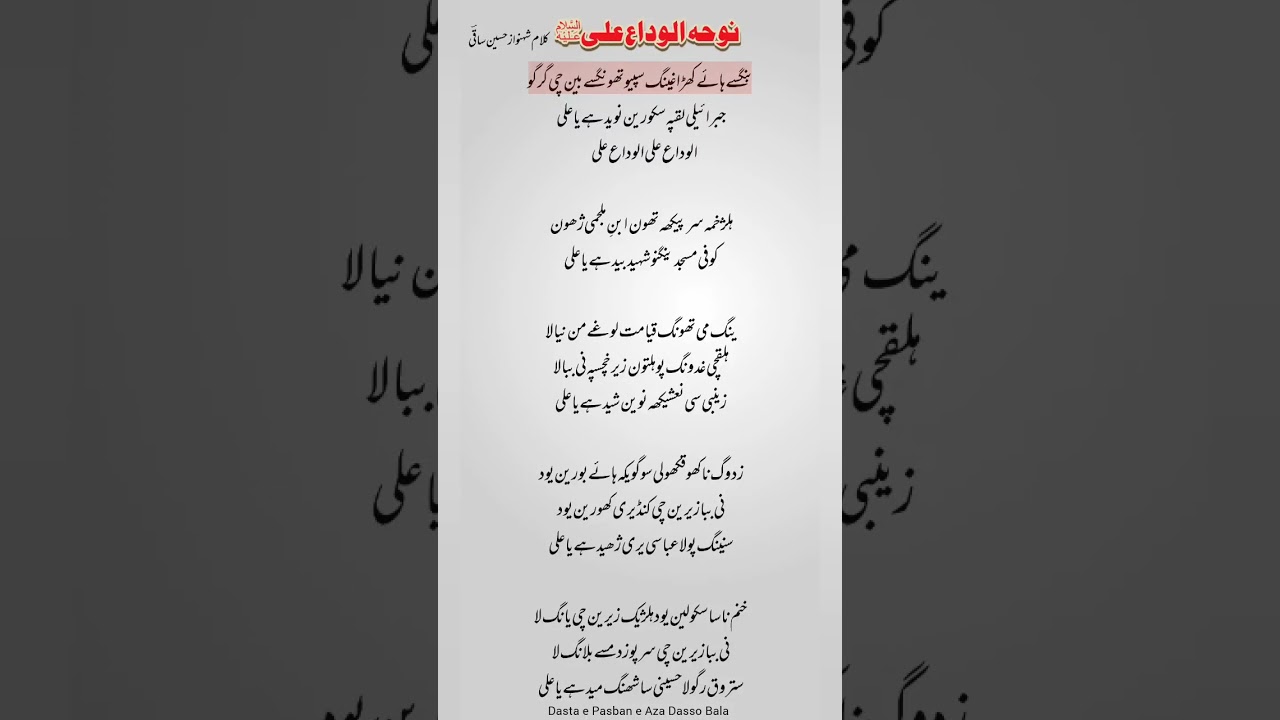 نوحہ الوداع علی علیہ السلام کلام شہنواز حسین ساقی
ہنگسے ہائے کھڑاغینگ سپیو تھونگسے ہین چی گرگو
جبرائیلی لقپہ سکورین نوید ہے یا علی
الوداع علی الوداع علی
ہلژخمہ سر پیکھہ تھون ابنِ ملجمی ژھون
کوفی مسجد ینگنو شہید بید ہے یا علی
ینگ می تھونگ قیامت لوغے من نیالا
ہلقچی غدونگ پو ہلتون زیر خچسپہ نی ببالا
زینبی سی نعشیکھہ نوین شید ہے یا علی
زدوگ نا کھو قکھولی سوگویکہ ہائے بورین یود
نی ببا زیرین چی کنڈیری کھورین یود
سنینگ پولا عباسی یری ژھید ہے یا علی
ختم نا سا سکولین یود ہلژیک زیرین چی یانگ لا
نی ببا زیرین چی سر پو زدمسے بلانگ لا
ستروق رگولا حسینی سا شھنگ مید ہے یا علی
Dasta e Pasban e Aza Dasso Bala
کوفی
لی
ینگ می
من نیالا
ہلقچی غ
ببالا
زینبی
یا علی
زدوگ
ین یود